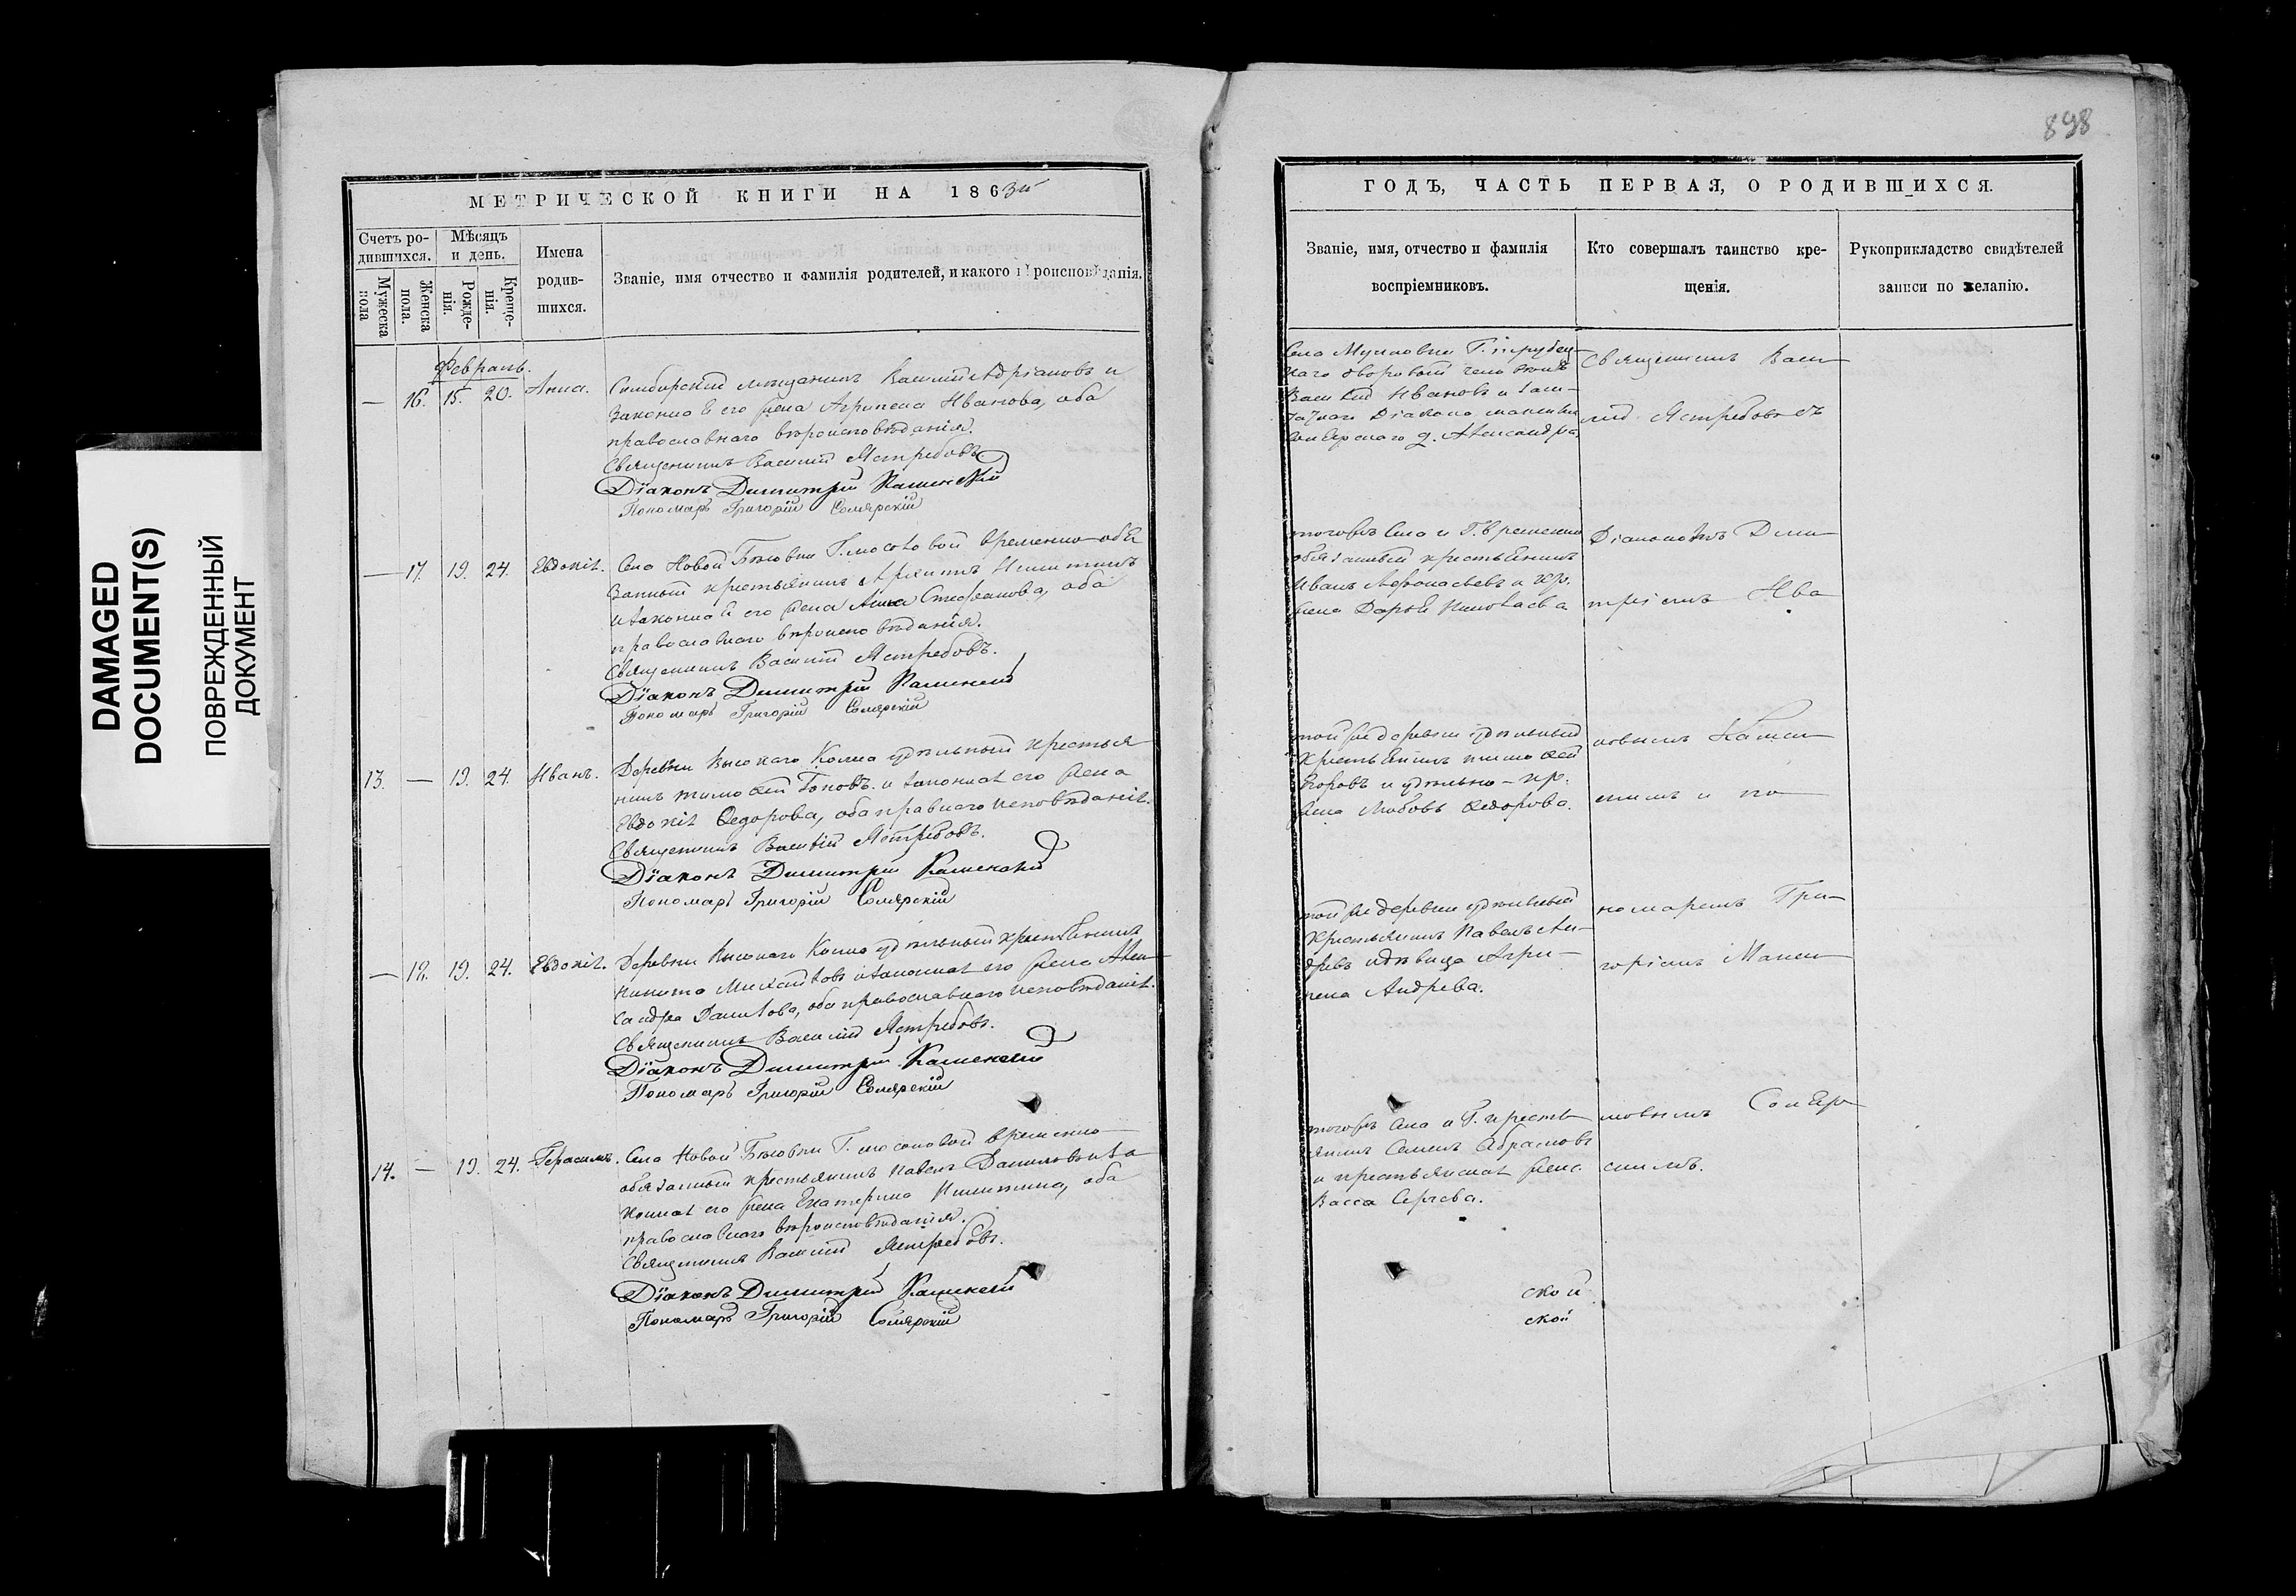 DAMAGED
DOCUMENT(S)
ПОВРЕЖДЕННЫЙ
ДОКУМЕНТ
МЕТРИЧЕСКОЙ КНИГИ НА 1863й
Счетъ ро-
дившихся.
Мѣсяцъ
и день.
Имена
родив-
шихся.
Званіе, имя отчество и фамилія родителей, и какого вѣроисповѣданія.
Мужеска
пола
Женска
пола.
Рожде-
нія.
Креще-
нія.
Февраль.
— 16. 15. 20. Анна. Симбирскій мѣщанинъ Василий Адріановъ и
законная его жена Агрипена Иванова, оба
православнаго вѣроисповѣданія.
Священникъ Василій Ястребовъ
Діаконъ Димитрій Каменскій
Пономарь Григорій
— 17. 19. 24. Евдокія. Села Новой Временно-обя
занный крестьянинъ Никитинъ
и законная его жена Анна Стефанова, оба
православнаго вѣроисповѣданія.
Священникъ Василій Ястребовъ.
Діаконъ Димитрій Каменскій
Пономарь Григорій
13. — 19. 24. Иванъ. Деревни Высокаго Колка удѣльный крестья-
нинъ Тимофей и законная его жена
Евдокія Ѳедорова, оба правнаго исповѣданія.
Священникъ Василій Ястребовъ.
Діаконъ Димитрій Каменскій
Пономарь Григорій
— 18. 19. 24. Евдокія. Деревни Высокаго Колка удѣльный крестьянинъ
Никита Михайловъ и законная его жена Алек-
сандра Данилова, оба православнаго исповѣданія.
Священникъ Василій Ястребовъ.
Діаконъ Димитрій Каменскій
Пономарь Григорій
14. — 19. 24. Герасимъ. Села Новой временно-
обязанный крестьянинъ Павелъ Даниловъ и за
конная его жена Екатерина Никитина, оба
православнаго вѣроисповѣданія.
Священникъ Василій Ястребовъ.
Діаконъ Димитрій Каменскій
Пономарь Григорій
898
ГОДЪ, ЧАСТЬ ПЕРВАЯ, О РОДИВШИХСЯ.
Званіе, имя, отчество и фамилія
воспріемниковъ.
Кто совершалъ таинство кре-
щенія.
Рукоприкладство свидѣтелей
записи по желанію.
Села Г. Трубец-
каго дворовый человѣкъ
Василій Ивановъ и
Діакона
д. Александра
Священникъ Васи-
лій Ястребовъ съ
тогожъ села и Г. временно
обязанный крестьянинъ
Иванъ Афонасьевъ и кр.
жена Дарья Николаева
Діакономъ Дими-
тріемъ Ива
той же деревни удѣльный
крестьянинъ Тимофей
Егоровъ и удѣльно-кр.
жена Любовь Ѳедорова.
новымъ Камен-
скимъ и по-
той же деревни удѣльный
крестьянинъ Павелъ Ан-
дреевъ и дѣвица Агри-
пена Андрева.
номаремъ Гри-
горіемъ
тогожъ села и Г. кресть-
янинъ Семенъ Абрамовъ
и крестьянская жена
Васса Сергева.
скимъ.
ской
ской